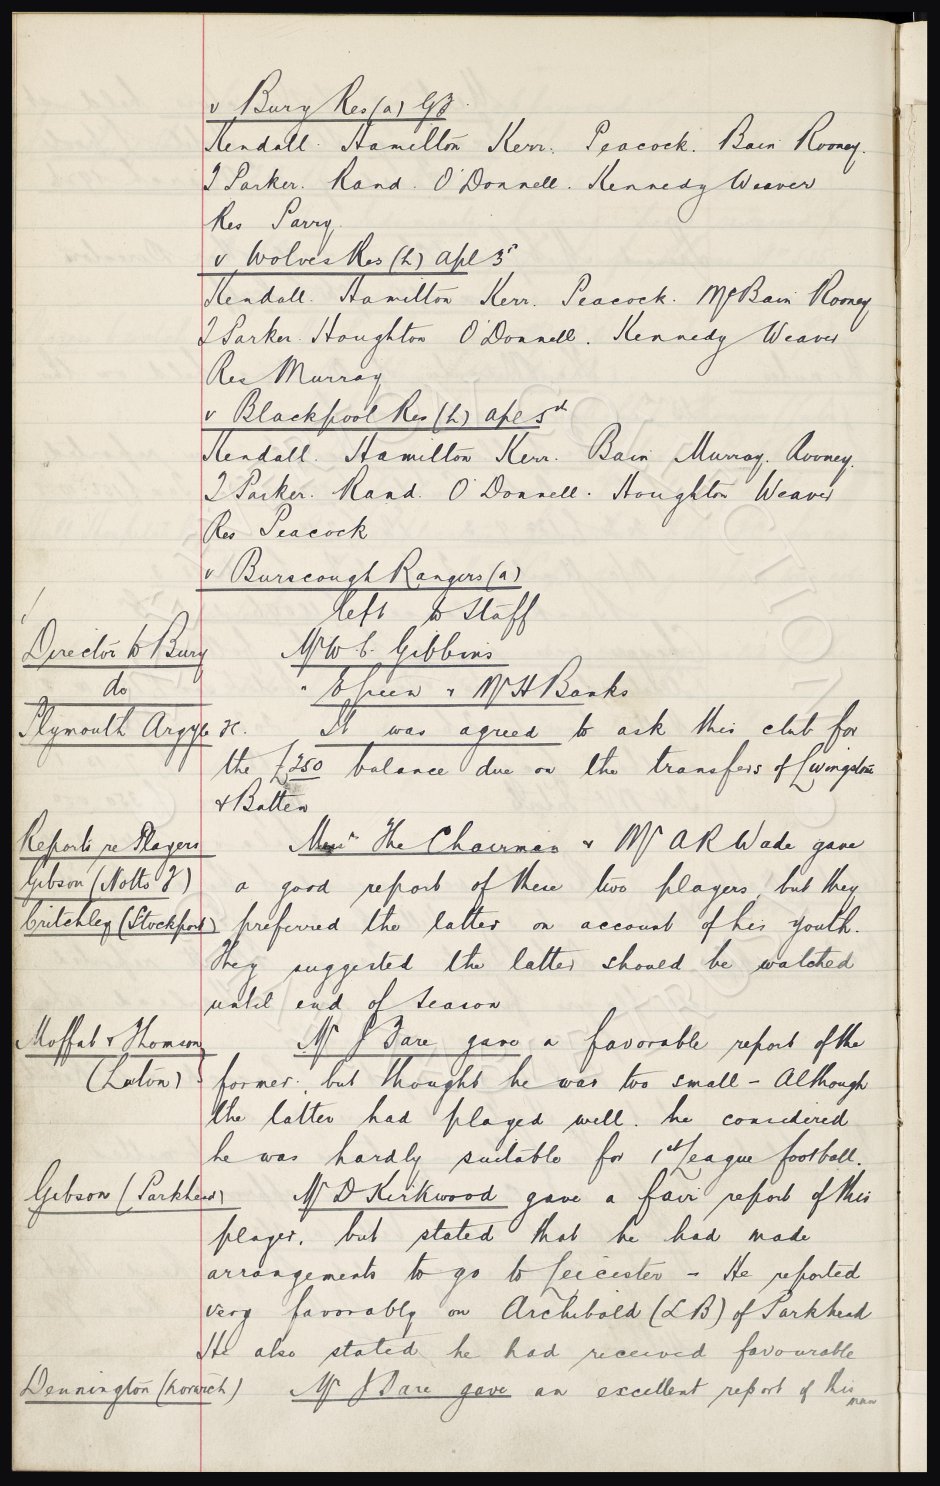 v Bury Res (a) G3
Kendall. Hamilton Kerr. Peacock. Bain Rooney.
J Parker. Rand. O'Donnell. Kennedy Weaver
Res Parry.
v Wolves Res (h) Apl 3r
Kendall. Hamilton Kerr. Peacock. McBain Rooney
J Parker. Houghton O'Donnell. Kennedy Weaver
Res Murray
v Blackpool Res (h) Apl 5th
Kendall. Hamilton Kerr. Bain Murray. Rooney.
J Parker. Rand. O'Donnell. Houghton Weaver
Res Peacock
v Burscough Rangers (a)
left to Staff
Director to Bury Mr W C Gibbins
do " E Green & Mr H Banks
Plymouth Argyle FC. It was agreed to ask this club for
the £250 balance due on the transfers of Livingstone
& Batten
Reports re Players The Chairman & Mr A R Wade gave
Gibson (Notts F) a good report of these two players, but they
Critchley (Stockport) preferred the latter on account of his youth.
They suggested the latter should be watched
until end of Season
Moffat & Thomson Mr J Fare gave a favorable report of the
(Luton) former. but thought he was too small - Although
the latter had played well. he considered
he was hardly suitable for 1st League football.
Gibson (Parkhead) Mr D Kirkwood gave a fair report of this
player. but stated that he had made
arrangements to go to Leicester - He reported
very favorably on Archibald (LB) of Parkhead
He also stated he had received favourable
Dennington (Norwich) Mr J Fare gave an excellent report of this
man